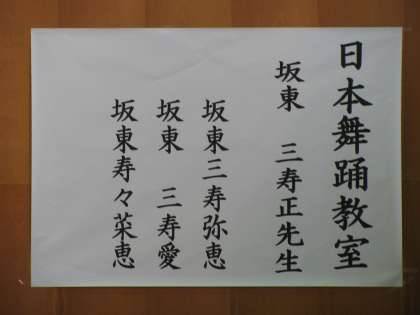 日本舞踊教室
坂東 三寿正先生
坂東三寿弥恵
坂東 三寿愛
坂東寿々菜恵